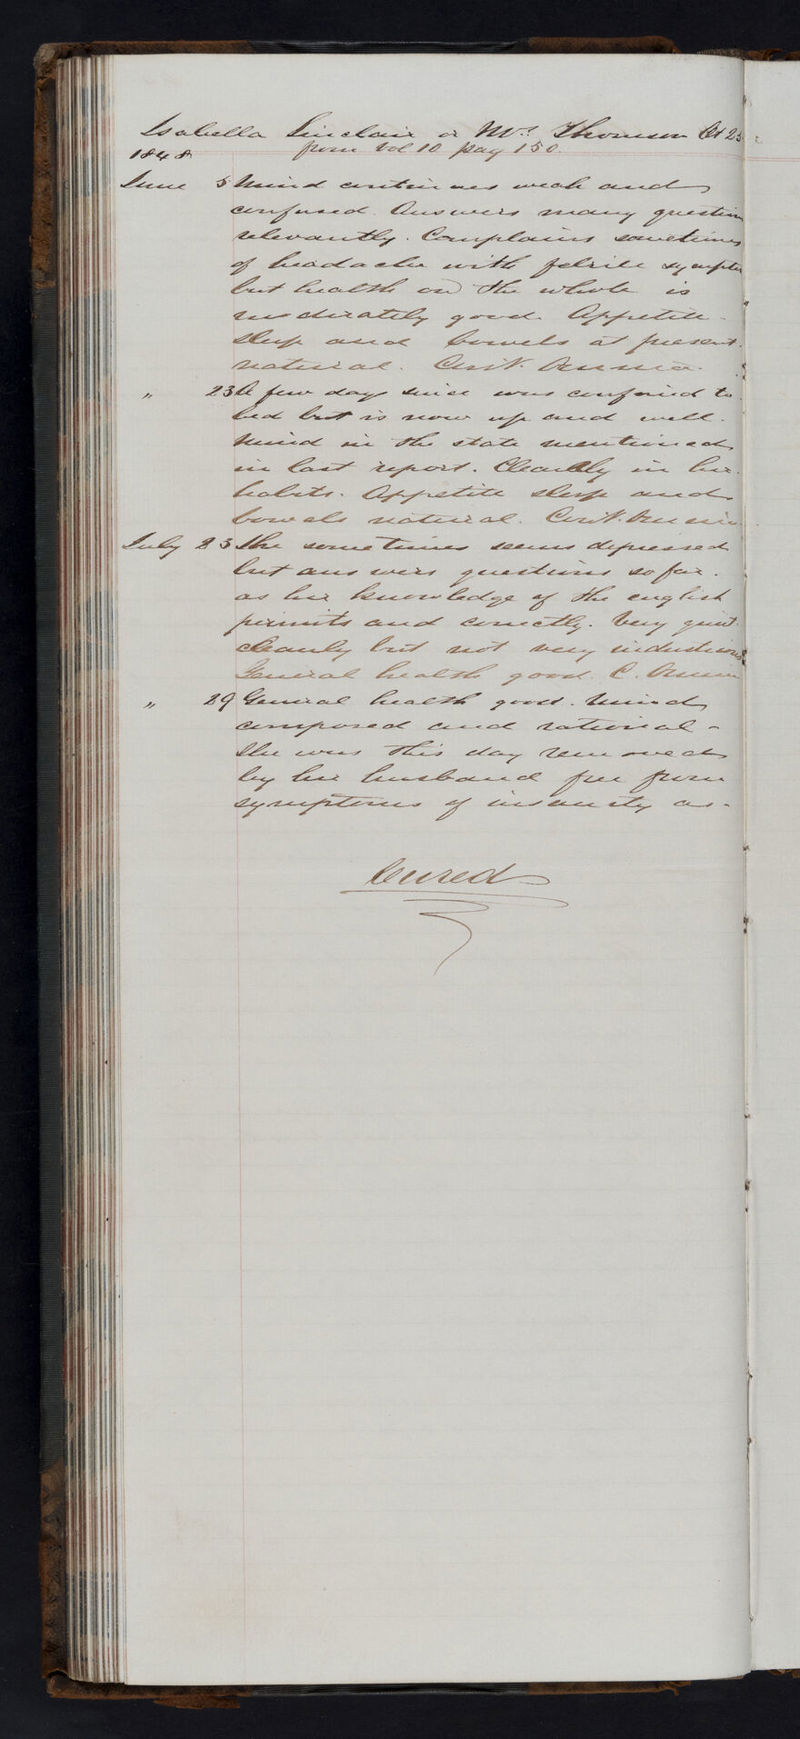 Isabella Sinclair or Mrs. Thomson Aet 25
1848 from Vol 10 pag 150.
June 5 Mind continues weak and
confused. Answers many question
relevantly. Complains sometimes
of headache with febrile sympto
but health on the whole is
moderately good. Appetite
sleep and bowels at present
natural. Cont. Omnia.
" 23 A few days since was confined to
bed but is now up and well.
Mind in the state mentioned
in last report. Cleanly in her
habits. Appetite sleep and
bowels natural. Cont. Omnia
July 23 She sometimes seems depressed
but answers questions so far
as her knowledge of the english
permits and correctly. Very quiet
cleanly but not very industrious
General health good. C. Omnia
" 29 General health good. Mind
composed and rational -
She was this day removed
by her husband free from
symptoms of insanity as -
Cured